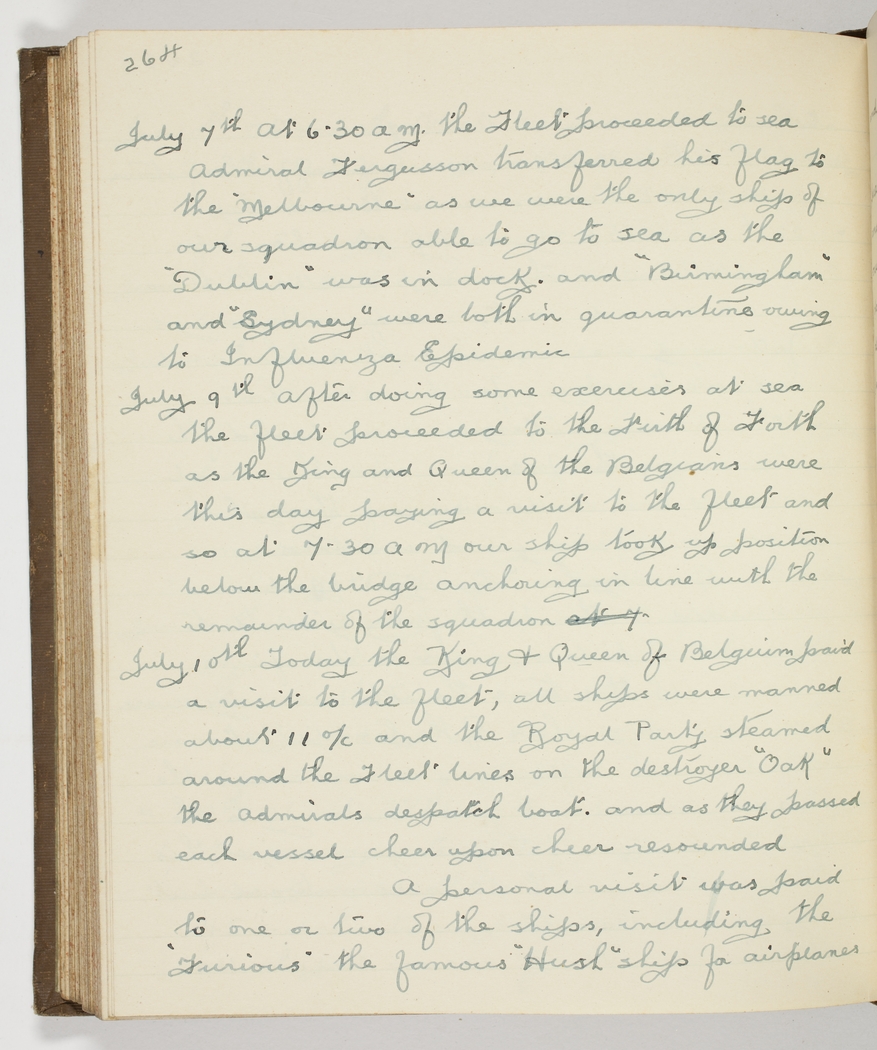 264
July 7th At 6.30 a m. the Fleet proceeded to sea
Admiral Fergusson transferred his flag to
the "Melbourne" as we were the only ship of
our squadron able to go to sea as the
"Dublin" was in dock. and "Birmingham"
and "Sydney" were both in quarantine owing
to Influenza Epidemic
July 9th After doing some exercises at sea
the fleet proceeded to the Firth of Forth
as the King and Queen of the Belgians were
this day paying a visit to the fleet and
so at 7.30 A M our ship took up position
below the bridge anchoring in line with the
remainder of the squadron at 7.
July 10th Today the King & Queen of Belgium paid
a visit to the fleet, all ships were manned
about 11 o/c and the Royal Party steamed
around the Fleet lines on the destroyer "Oak"
the Admirals despatch boat. and as they passed
each vessel cheer upon cheer resounded
A personal visit was paid
to one or two of the ships, including the
"Furious" the famous "Hush" ship for airplanes